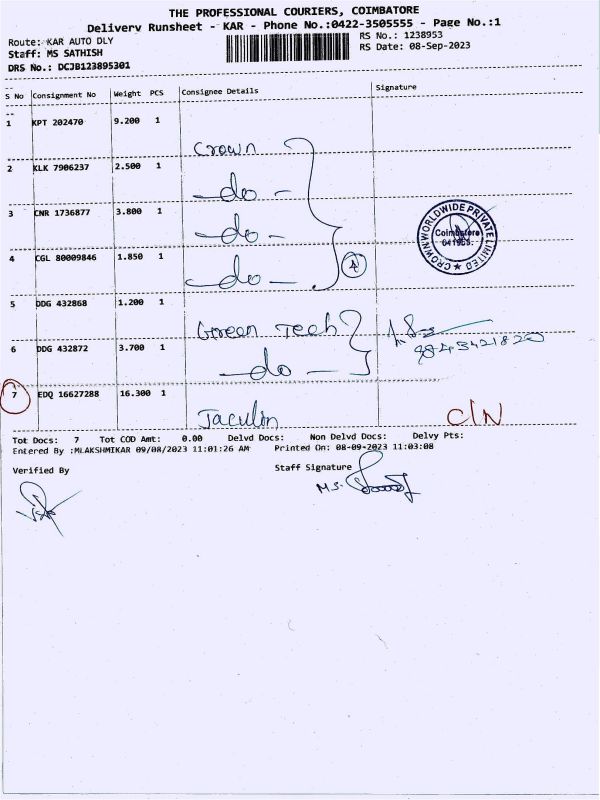 THE PROFESSIONAL COURIERS, COIMBATORE
Delivery Runsheet - KAR - Phone No.:0422-3505555 - Page No.:1
Route: KAR AUTO DLY
RS No.: 1238953
Staff: MS SATHISH
RS Date: 08-Sep-2023
DRS No.: DCJB123895301
S No Consignment No Weight PCS Consignee Details Signature
1 KPT 202470 9.200 1
Crown
2 KLK 7906237 2.500 1
-do-
3 CNR 1736877 3.800 1
-do-
4 CGL 80009846 1.850 1
-do-
4
CROWN WORLDWIDE PRIVATE LIMITED
Coimbatore
5 DDG 432868 1.200 1
Green Tech
9843421820
6 DDG 432872 3.700 1
-do-
7 EDQ 16627288 16.300 1
C/N
Tot Docs: 7 Tot COD Amt: 0.00 Delvd Docs: Non Delvd Docs: Delvy Pts:
Entered By :MLAKSHMIKAR 09/08/2023 11:01:26 AM Printed On: 08-09-2023 11:03:08
Verified By
Staff Signature
M.S.